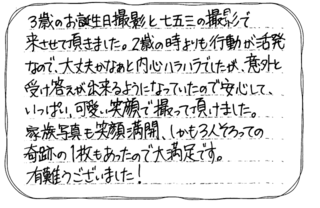 3歳のお誕生日撮影と七五三の撮影で
来させて頂きました。2歳の時よりも行動が活発
なので、大丈夫かなぁと内心ハラハラでしたが、意外と
受け答えが出来るようになっていたので安心して、
いっぱい可愛い笑顔で撮って頂けました。
家族写真も笑顔満開、しかも3人そろっての
奇跡の1枚もあったので大満足です。
有難うございました!